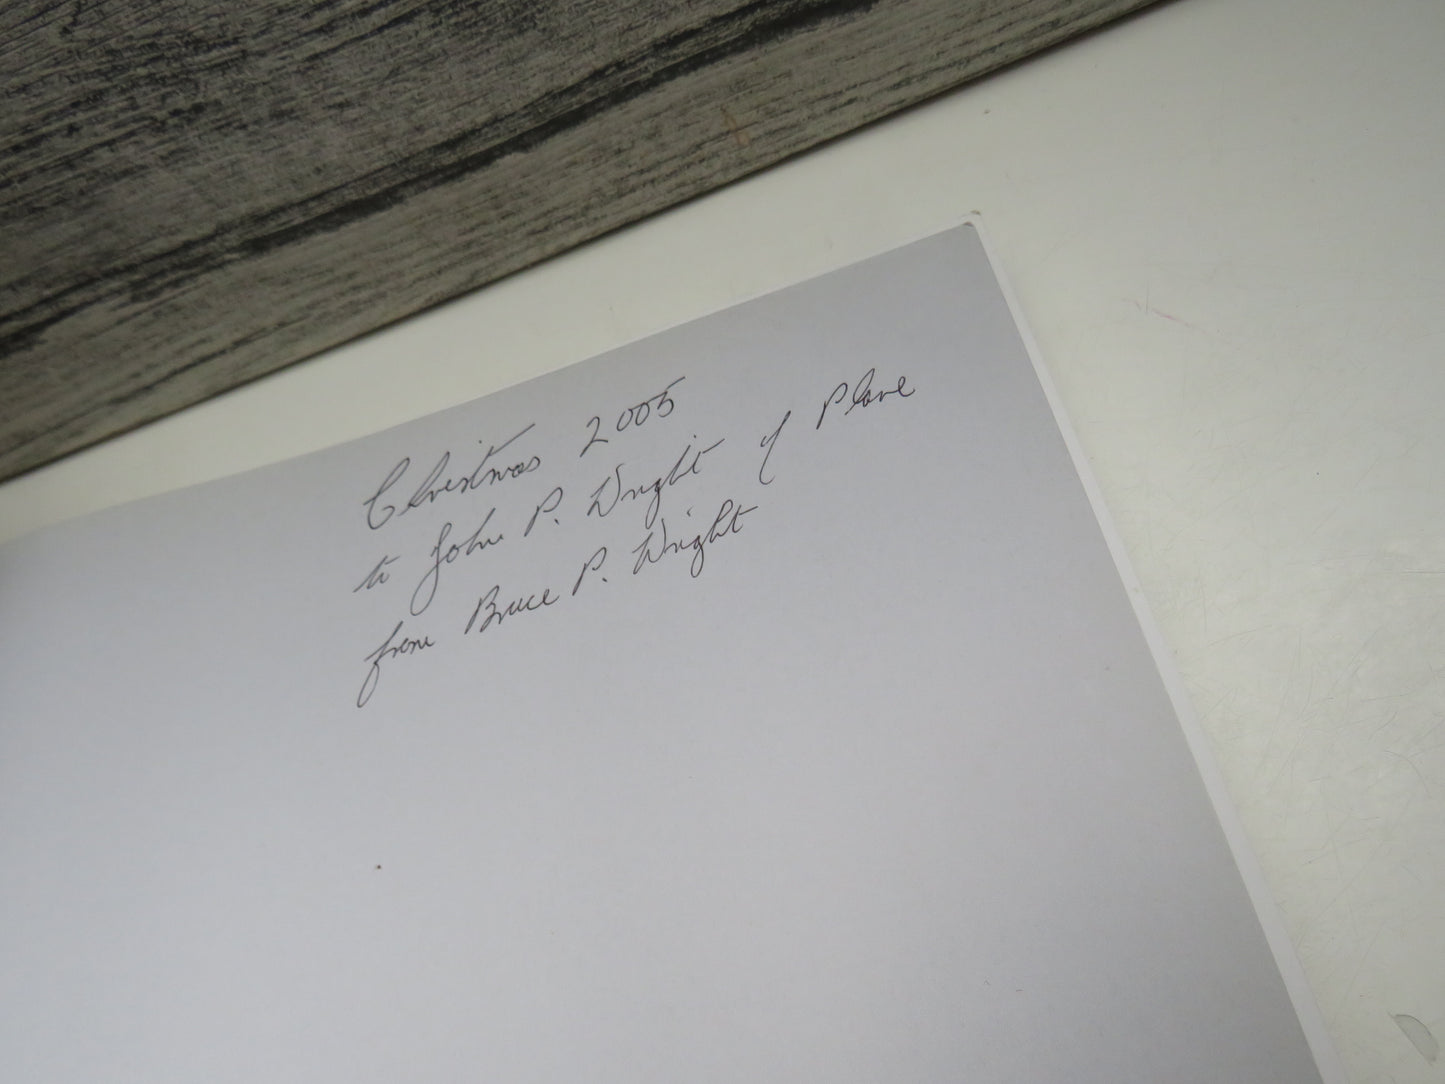 Christmas 2005
to John P. Wright of Plone
from Bruce P. Wright